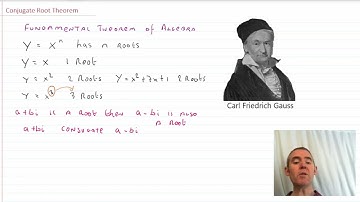 Conjugate Root Theorem
FUNDAMENTAL THEOREM OF ALGEBRA
Y = xⁿ has n ROOTS
Y = x 1 ROOT
Y = x² 2 ROOTS Y = x² + 7x + 1 2 ROOTS
Y = x³ 3 ROOTS
a + bi IS A ROOT then a - bi IS ALSO
A ROOT
a + bi CONJUGATE a - bi
Carl Friedrich Gauss